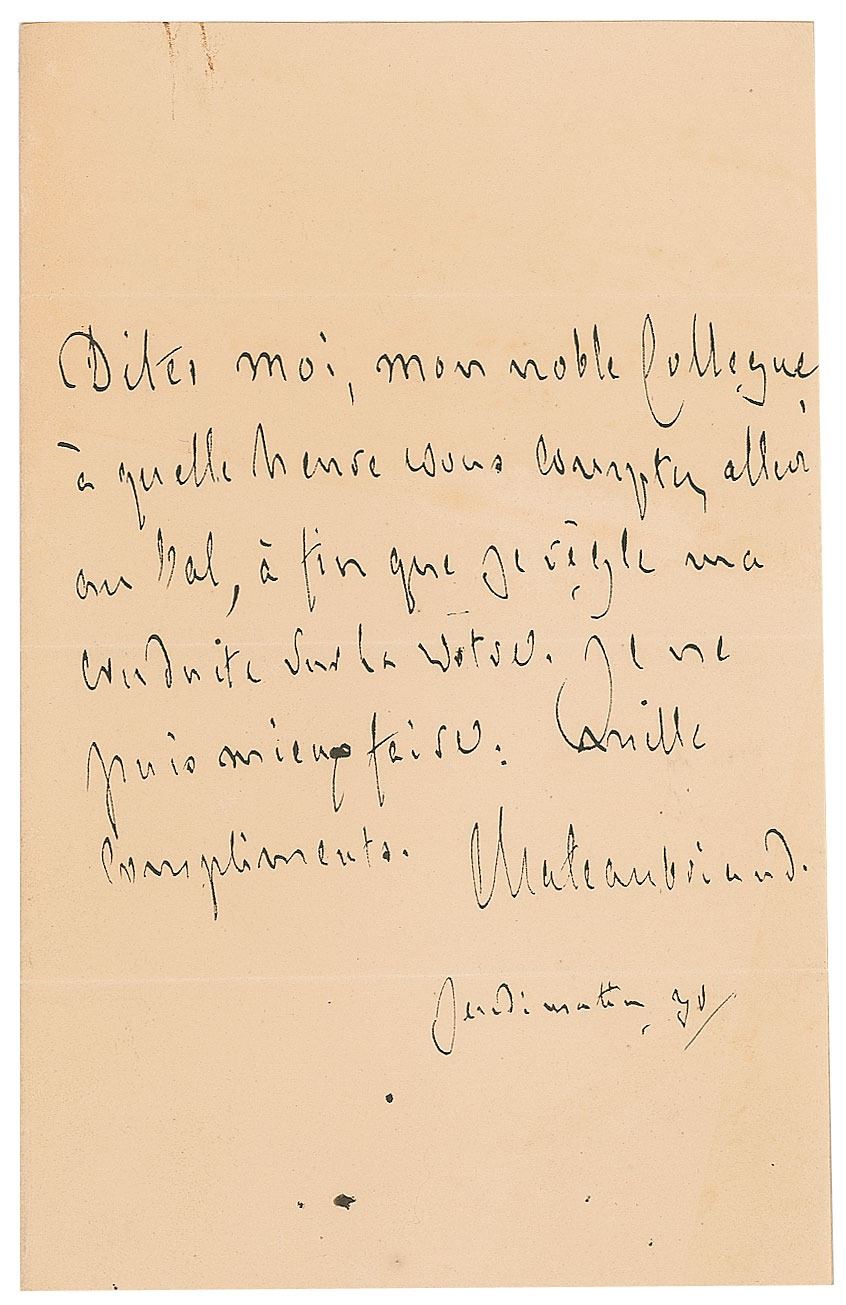 Dites moi, mon noble Collegue,
à quelle heure vous comptez aller
au bal, à fin que je règle ma
conduite sur la vôtre. Je ne
puis mieux faire. Mille
compliments. Chateaubriand.
Jeudi matin